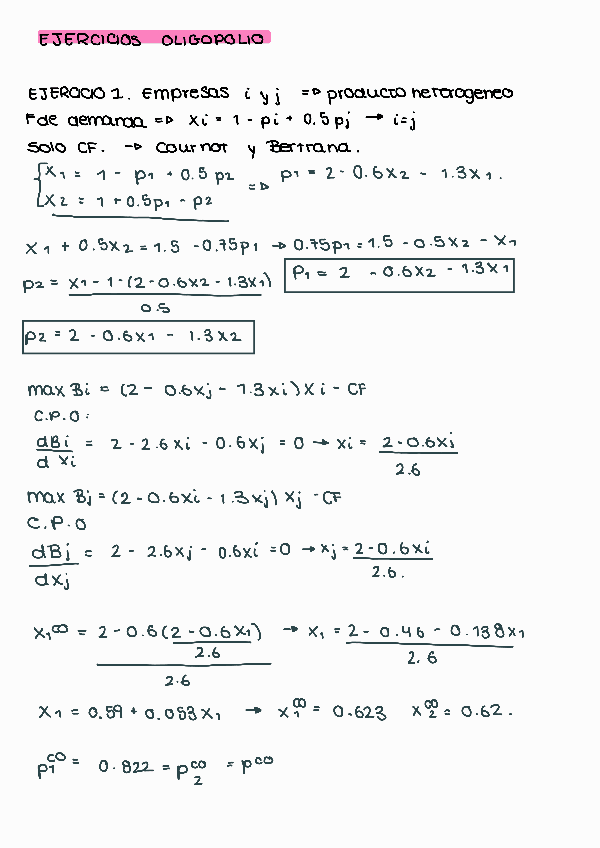 EJERCICIOS OLIGOPOLIO
EJERCICIO 1. Empresas i y j => producto heterogeneo
F de demanda => Xi = 1 - pi + 0.5 pj → i=j
Solo CF. → Cournot y Bertrand.
X1 = 1 - p1 + 0.5 p2 => p1 = 2 - 0.6x2 - 1.3x1.
X2 = 1 + 0.5p1 - p2
X1 + 0.5x2 = 1.5 - 0.75p1 → 0.75p1 = 1.5 - 0.5x2 - x1
p2 = x1 - 1 + (2 - 0.6x2 - 1.3x1) / 0.5
P1 = 2 - 0.6x2 - 1.3x1
p2 = 2 - 0.6x1 - 1.3x2
max Bi = (2 - 0.6xj - 1.3xi) Xi - CF
C.P.O:
dBi / dXi = 2 - 2.6xi - 0.6xj = 0 → xi = 2 - 0.6xj / 2.6
max Bj = (2 - 0.6xi - 1.3xj) Xj - CF
C.P.O
dBj / dxj = 2 - 2.6xj - 0.6xi = 0 → xj = 2 - 0.6xi / 2.6.
X1^CO = 2 - 0.6 (2 - 0.6x1 / 2.6) / 2.6 → x1 = 2 - 0.46 - 0.138x1 / 2.6
X1 = 0.59 + 0.053x1 → x1^CO = 0.623 x2^CO = 0.62.
p1^CO = 0.822 = p2^CO = p^CO